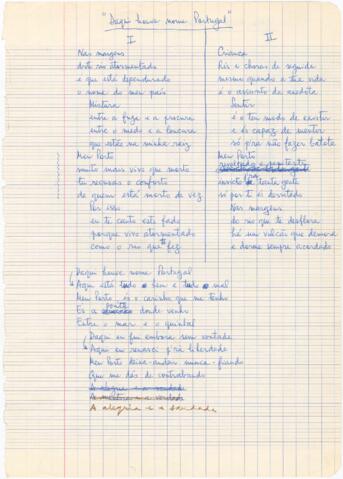 "Daqui houve nome Portugal"
I
Nas margens
dste rio atormentado
e que está dependurado
o nome do meu país
Mistura
entre a fuga e a procura
entre o medo e a loucura
que estão na minha raiz
Meu Porto
muito mais vivo que morto
tu recusas o conforto
de quem está morto de vez
Por isso
eu te canto este fado
porque vivo atormentado
como o rio que te fez
II
Criança
Ris e choras de seguida
mesmo quando a tua vida
é o assunto da
Sentir
é o teu modo de existir
e és capaz de mentir
só p'ra não fazer batota
Meu Porto
revoltado e
invicto p'ra tanta gente
só por ti és derrotado
Nas margens
do rio que te desflora
há um vulcão que demora
e dorme sempre acordado
Daqui houve nome Portugal
Aqui está tudo o bem e tudo o mal
Meu Porto és o carinho que me tenho
És a ponte donde venho
Entre o mar e o quintal
Daqui eu fui embora sem vontade
Aqui eu renasci p'rá liberdade
Meu Porto deixa-andar nunca-fiando
Que me dás de contrabando
A alegria e a saudade
A mentira e a verdade
A alegria e a saudade